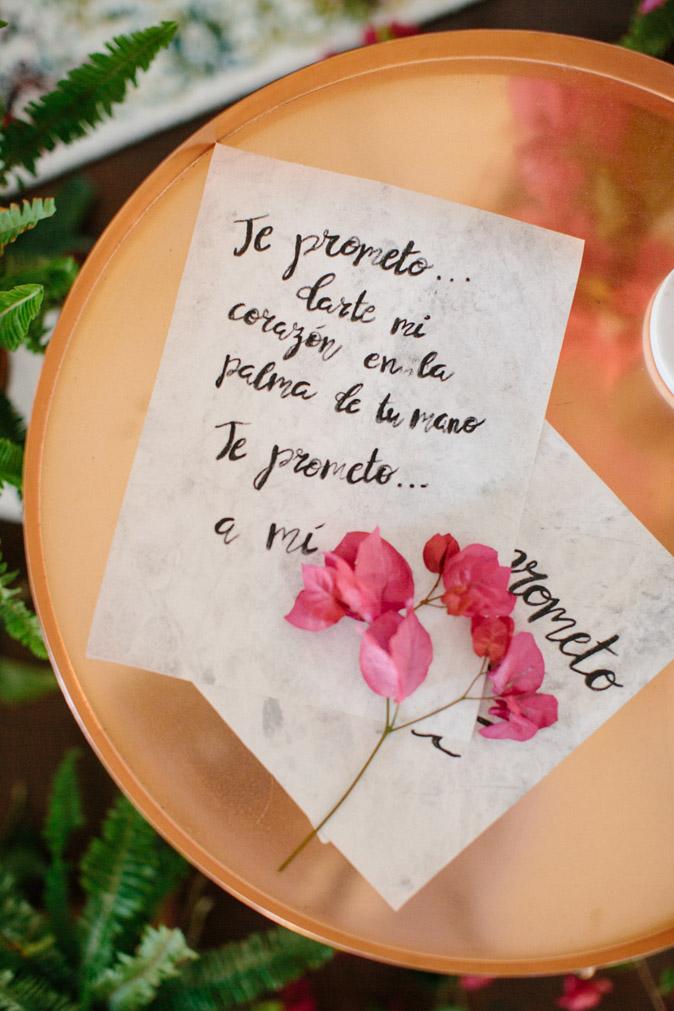 Te prometo...
darte mi
corazón en la
palma de tu mano
Te prometo...
a mí
prometo